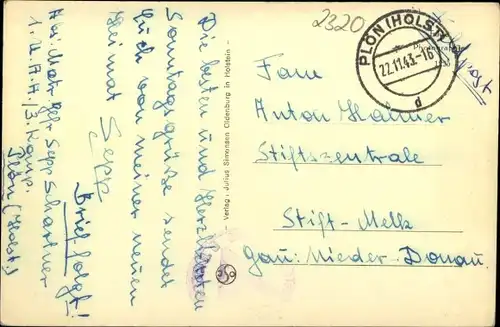 2320
PLÖN (HOLST)
22.11.43.-16
d
Feldpost
Fam
Anton
Stiftszentrale
Stift-Melk
Gau: Nieder-Donau
- Verlag: Julius Simonsen Oldenburg in Holstein -
Die besten und Herzlichsten
Sonntagsgrüsse sendet
Euch von meiner neuen
Heimat Sepp
Brief folgt!
Sepp
1. U.A.A. / 3. Komp.
Plön (Holst.)